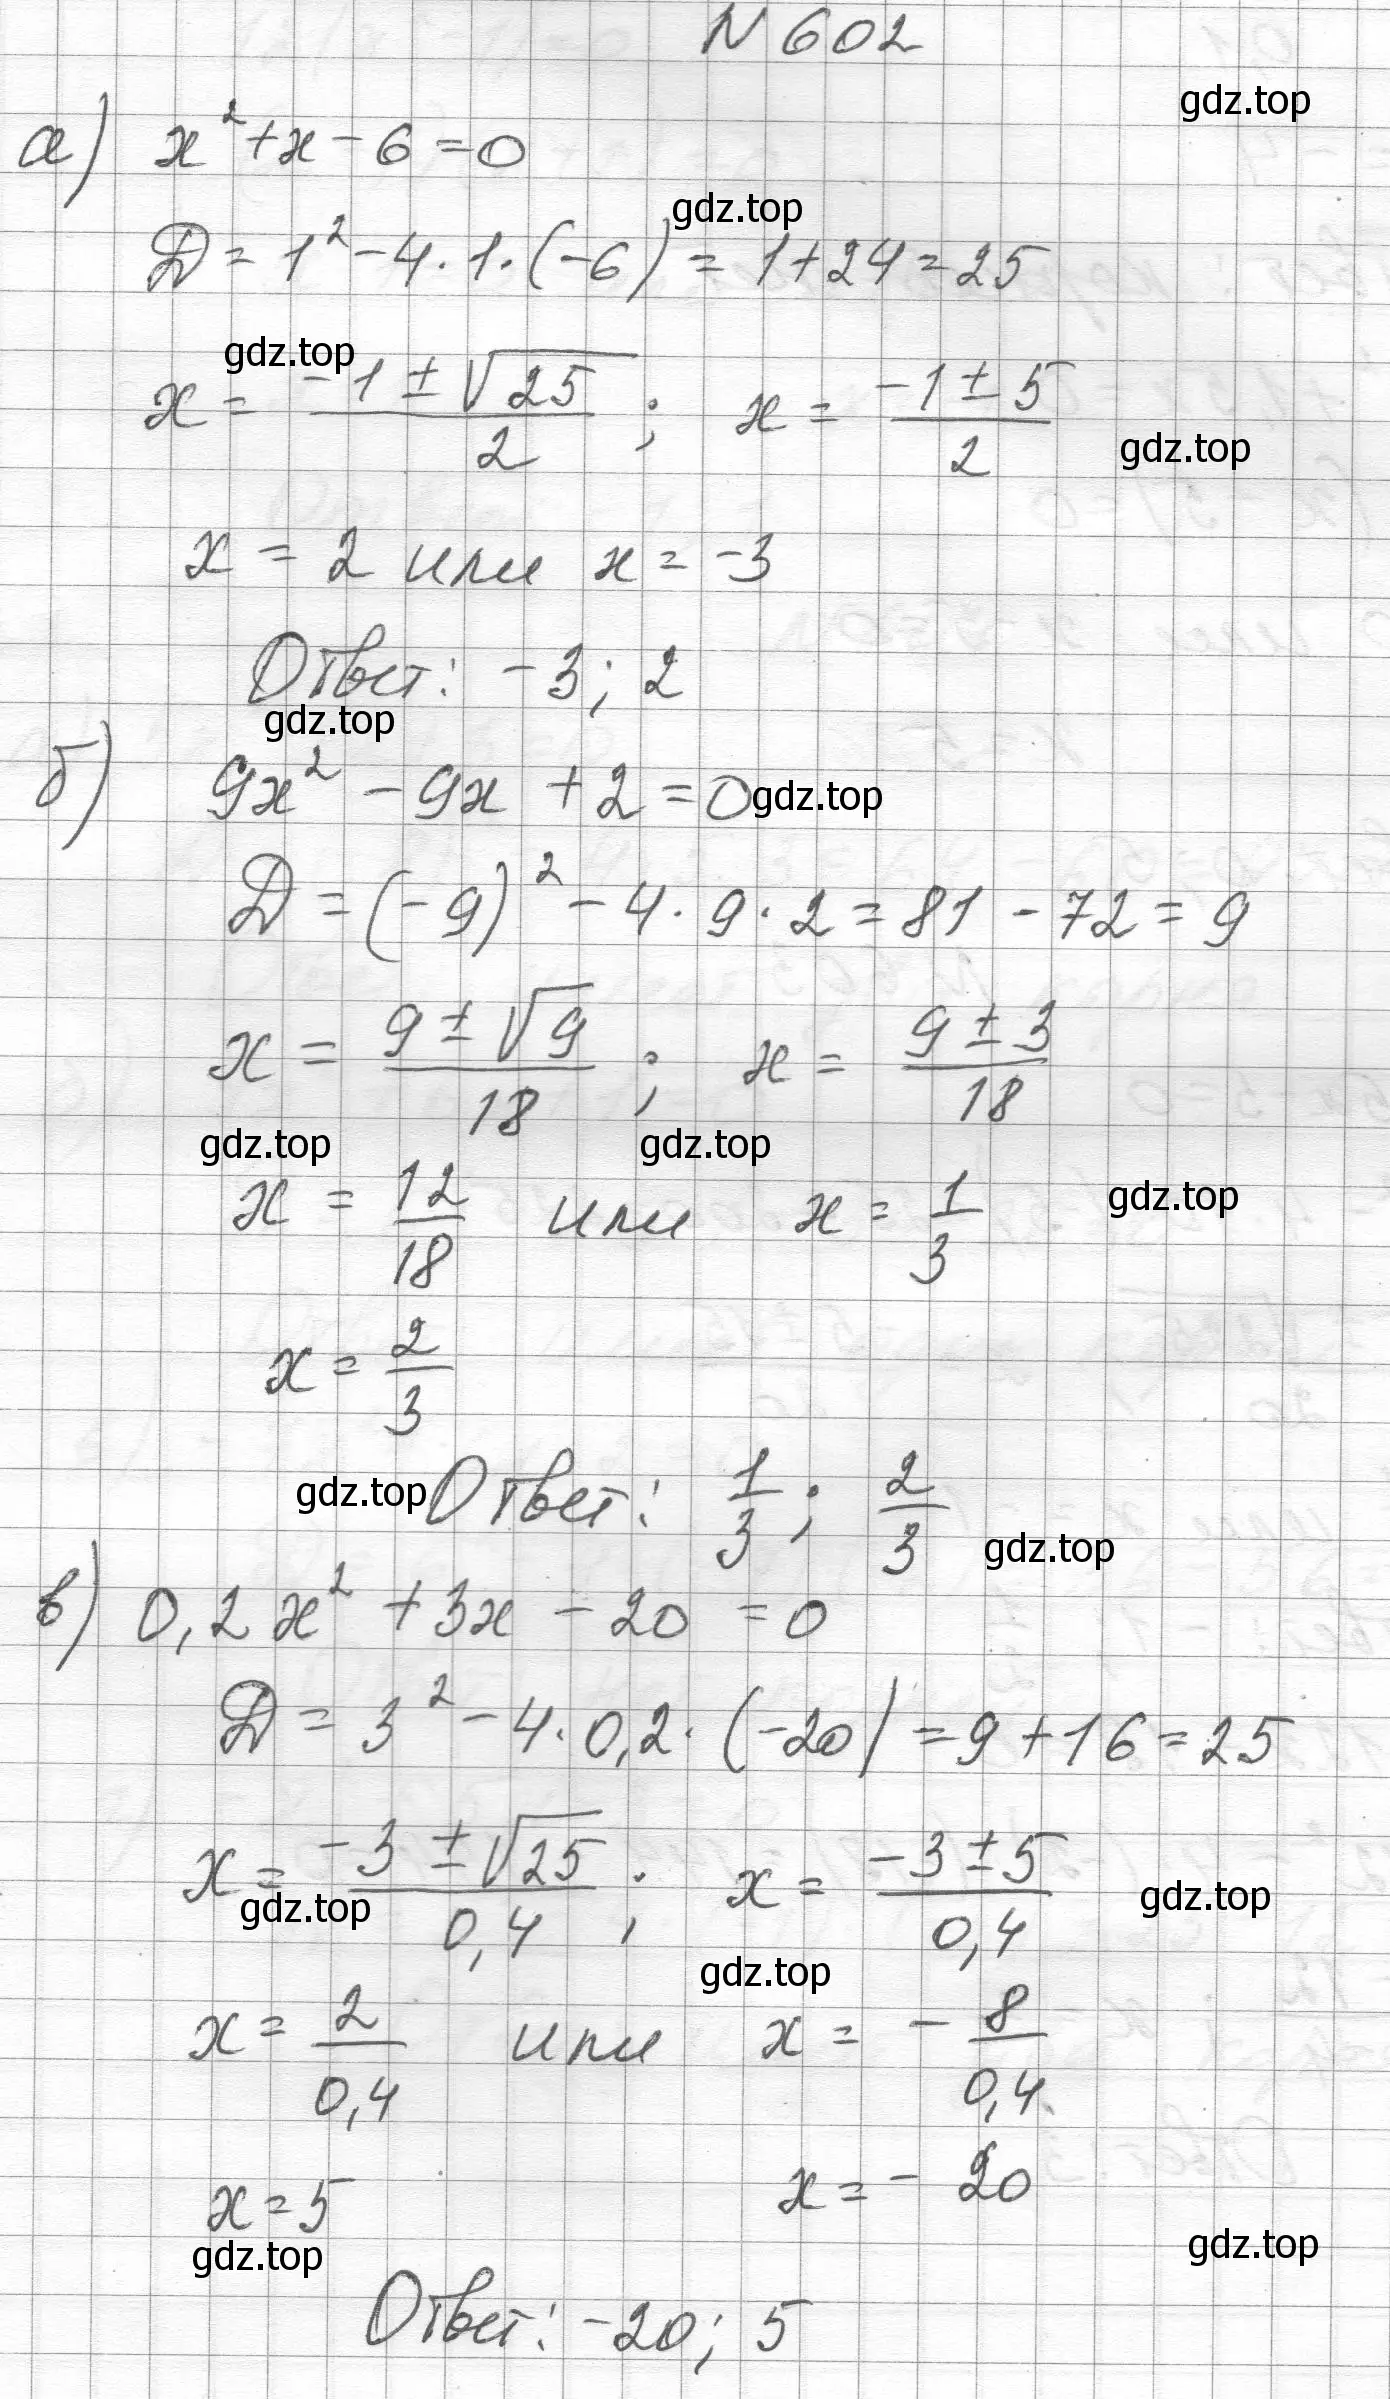 N 602
gdz.top
а) x² + x - 6 = 0
gdz.top
D = 1² - 4 · 1 · (-6) = 1 + 24 = 25
gdz.top
x = (-1 ± √25)/2 ; x = (-1 ± 5)/2
gdz.top
x = 2 или x = -3
Ответ: -3; 2
gdz.top
б) 9x² - 9x + 2 = 0 gdz.top
D = (-9)² - 4 · 9 · 2 = 81 - 72 = 9
x = (9 ± √9)/18 ; x = (9 ± 3)/18
gdz.top gdz.top
x = 12/18 или x = 1/3 gdz.top
x = 2/3
gdz.top Ответ: 1/3 ; 2/3
gdz.top
в) 0,2x² + 3x - 20 = 0
D = 3² - 4 · 0,2 · (-20) = 9 + 16 = 25
x = (-3 ± √25)/0,4 ; x = (-3 ± 5)/0,4
gdz.top gdz.top
gdz.top
x = 2/0,4 или x = - 8/0,4
x = 5 x = - 20
gdz.top gdz.top
Ответ: -20; 5